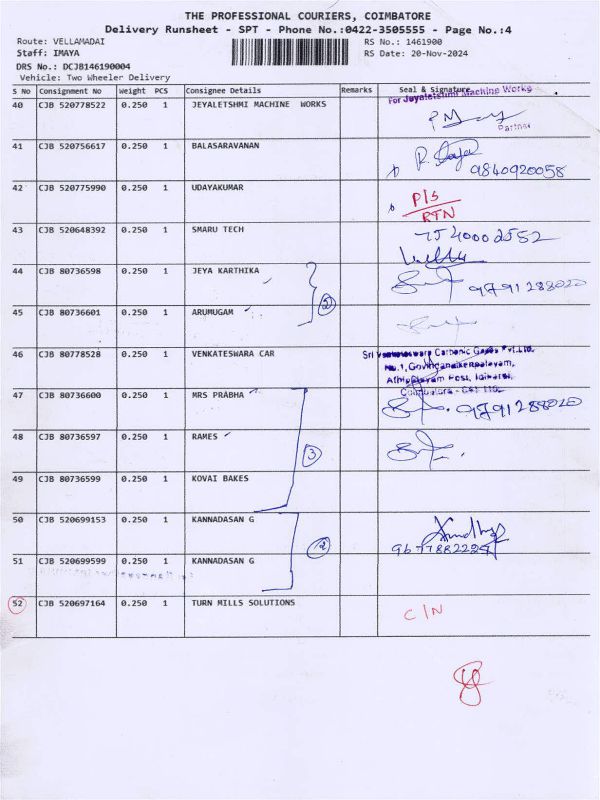 THE PROFESSIONAL COURIERS, COIMBATORE
Delivery Runsheet - SPT - Phone No.:0422-3505555 - Page No.:4
Route: VELLAMADAI RS No.: 1461900
Staff: IMAYA RS Date: 20-Nov-2024
DRS No.: DCJB146190004
Vehicle: Two Wheeler Delivery
S No Consignment No Weight PCS Consignee Details Remarks Seal & Signature
For Jeyaletshmi Machine Works
40 CJB 520778522 0.250 1 JEYALETSHMI MACHINE WORKS
Partner
41 CJB 520756617 0.250 1 BALASARAVANAN
9840920058
42 CJB 520775990 0.250 1 UDAYAKUMAR
P/S
RTN
43 CJB 520648392 0.250 1 SMARU TECH
44 CJB 80736598 0.250 1 JEYA KARTHIKA
9791288020
2
45 CJB 80736601 0.250 1 ARUMUGAM
46 CJB 80778528 0.250 1 VENKATESWARA CAR
Sri Venkateswara Carbonic Gases Pvt.Ltd.
No.1, Govindanaickenpalayam,
Athipalayam Post, Idikarai,
47 CJB 80736600 0.250 1 MRS PRABHA
9791288020
48 CJB 80736597 0.250 1 RAMES
3
49 CJB 80736599 0.250 1 KOVAI BAKES
50 CJB 520699153 0.250 1 KANNADASAN G
2
51 CJB 520699599 0.250 1 KANNADASAN G
52 CJB 520697164 0.250 1 TURN MILLS SOLUTIONS
C/N